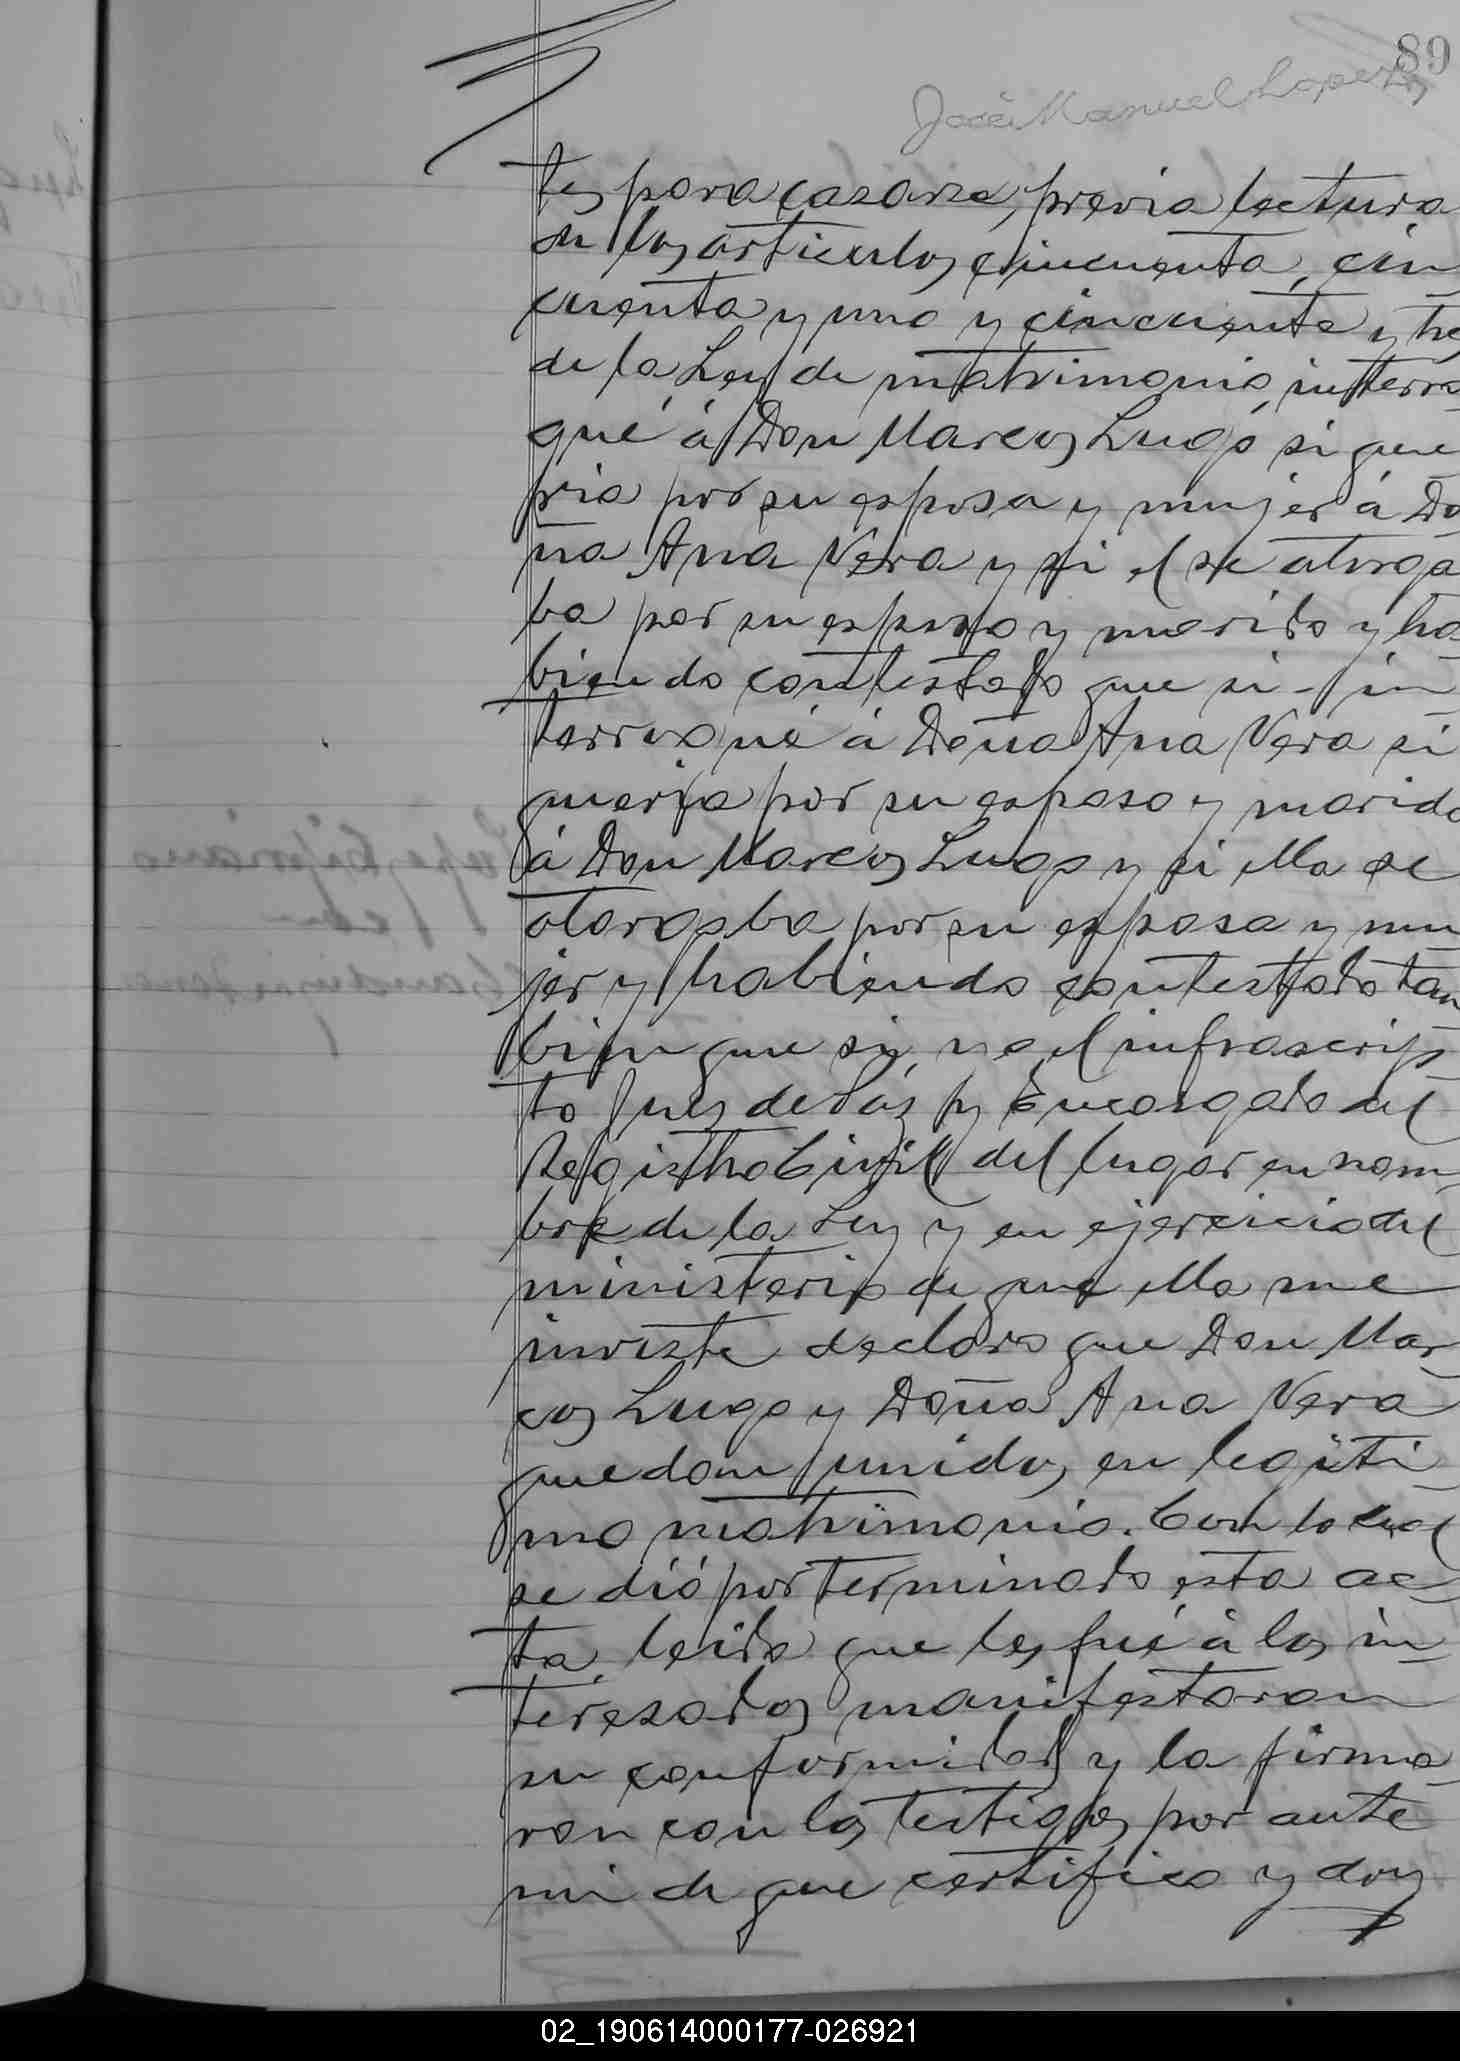 89
José Manuel Lopez
tes para casarse, previa lectura
de los articulos cincuenta, cin
cuenta y uno y cincuenta y tres
de la Ley de matrimonio, interro
gué á Don Marcos Lugo si que
ria por su esposa y mujer á Do
ña Ana Vera y si el se otorga
ba por su esposo y marido y ha
biendo contestado que si - in
terrogué á Doña Ana Vera si
queria por su esposo y marido
á Don Marcos Lugo y si ella se
otorgaba por su esposa y mu
jer y habiendo contestado tam
bien que si, yo el infrascrip
to Juez de Paz y Encargado del
Registro Civil del lugar en nom
bre de la Ley y en ejercicio del
ministerio de que ella me
inviste declaro que Don Mar
cos Lugo y Doña Ana Vera
quedan unidos en legiti
mo matrimonio. Con lo cual
se dió por terminado esta ac
ta, leida que les fué á los in
teresados manifestaron
su conformidad y la firma
ron con los testigos por ante
mi de que certifico y doy
02_190614000177-026921